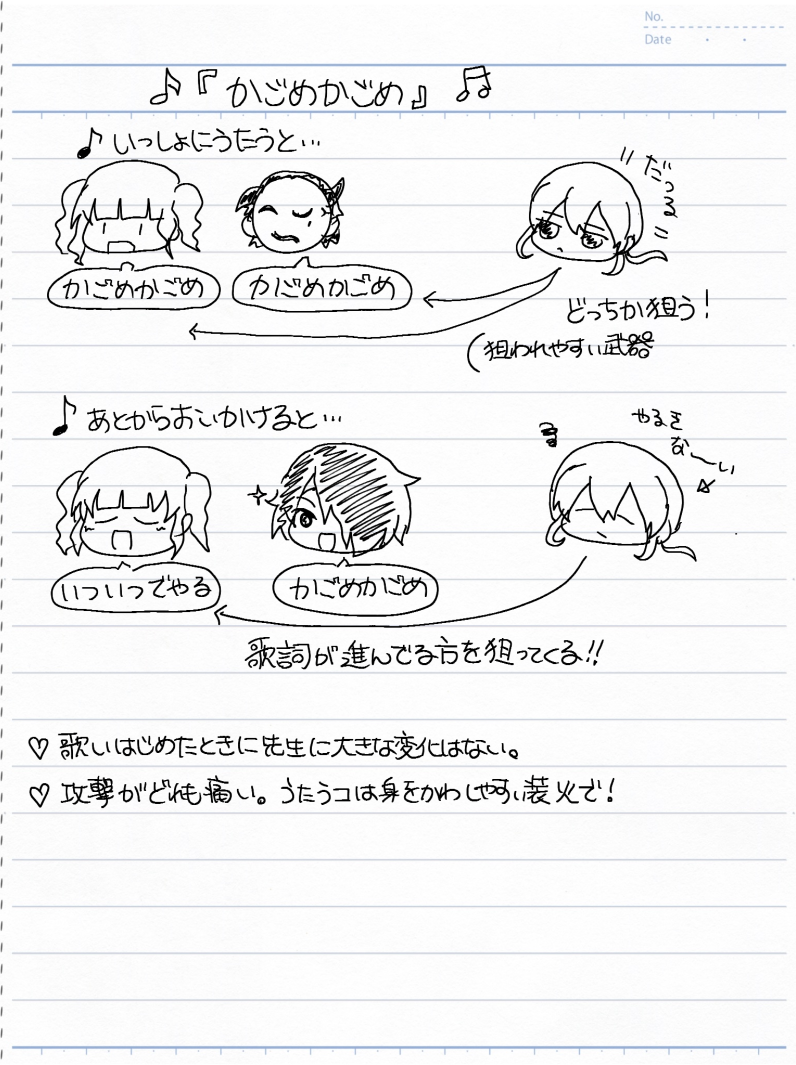 No.
Date
♪『かごめかごめ』♫
♪いっしょにうたうと…
だっる
かごめかごめ
かごめかごめ
どっちか狙う!
(狙われやすい武器
♪あとからおいかけると…
やるき
な〜い
いついつでやる
かごめかごめ
歌詞が進んでる方を狙ってくる!!
♡歌いはじめたときに先生に大きな変化はない。
♡攻撃がどれも痛い。うたうコは身をかわしやすい装火で!